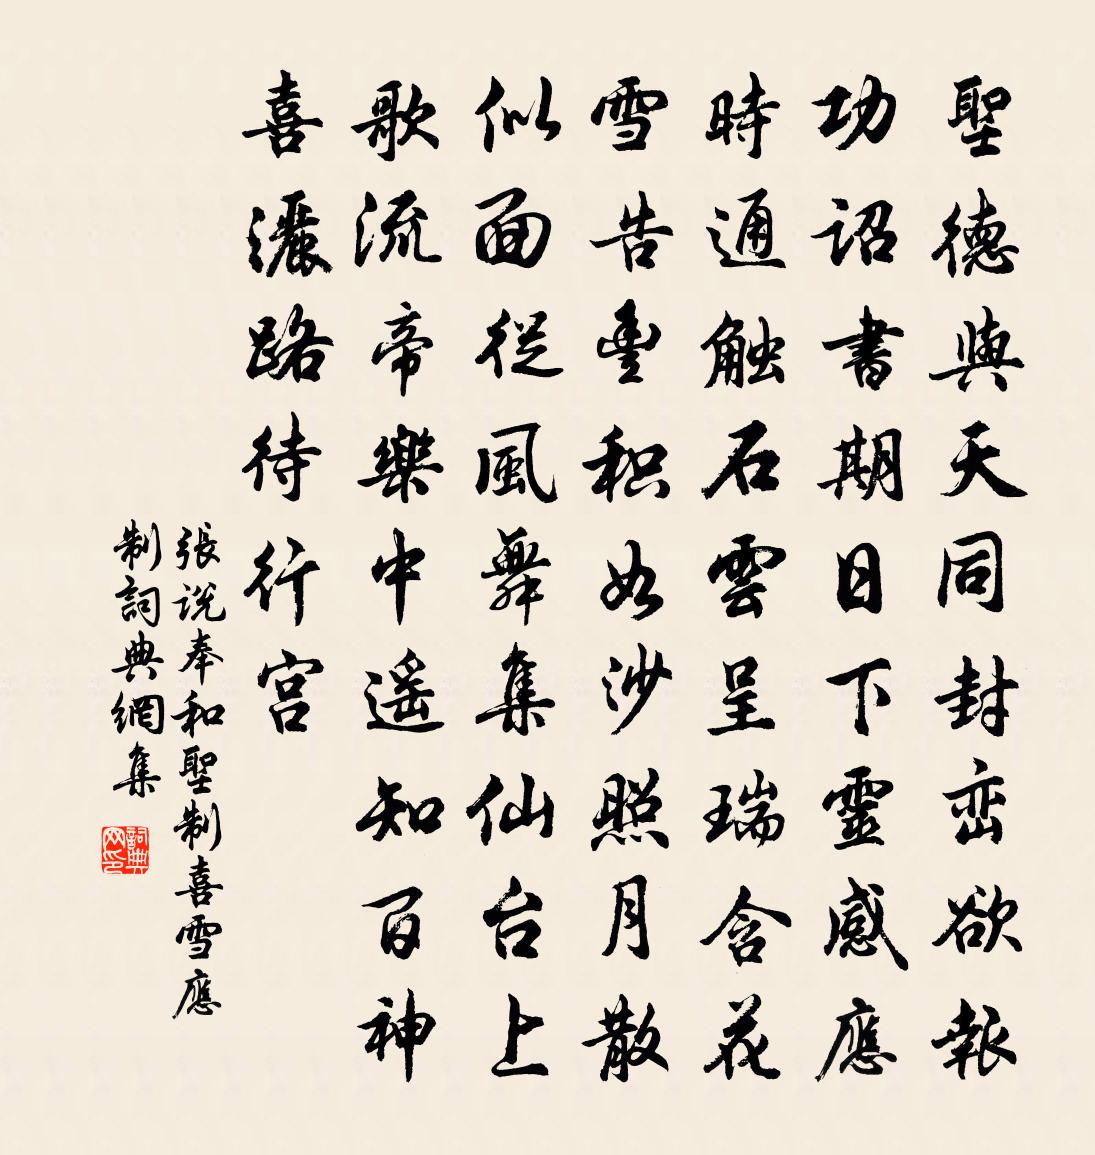 聖德與天同封巒欲報
功詔書期日下靈感應
時通触石雲呈瑞含花
雪告豊积如沙照月散
似面従風舞集仙台上
歌流帝樂中遥知百神
喜灑路待行宫
張说奉和聖制喜雪應
制詞典網集
詞典网印